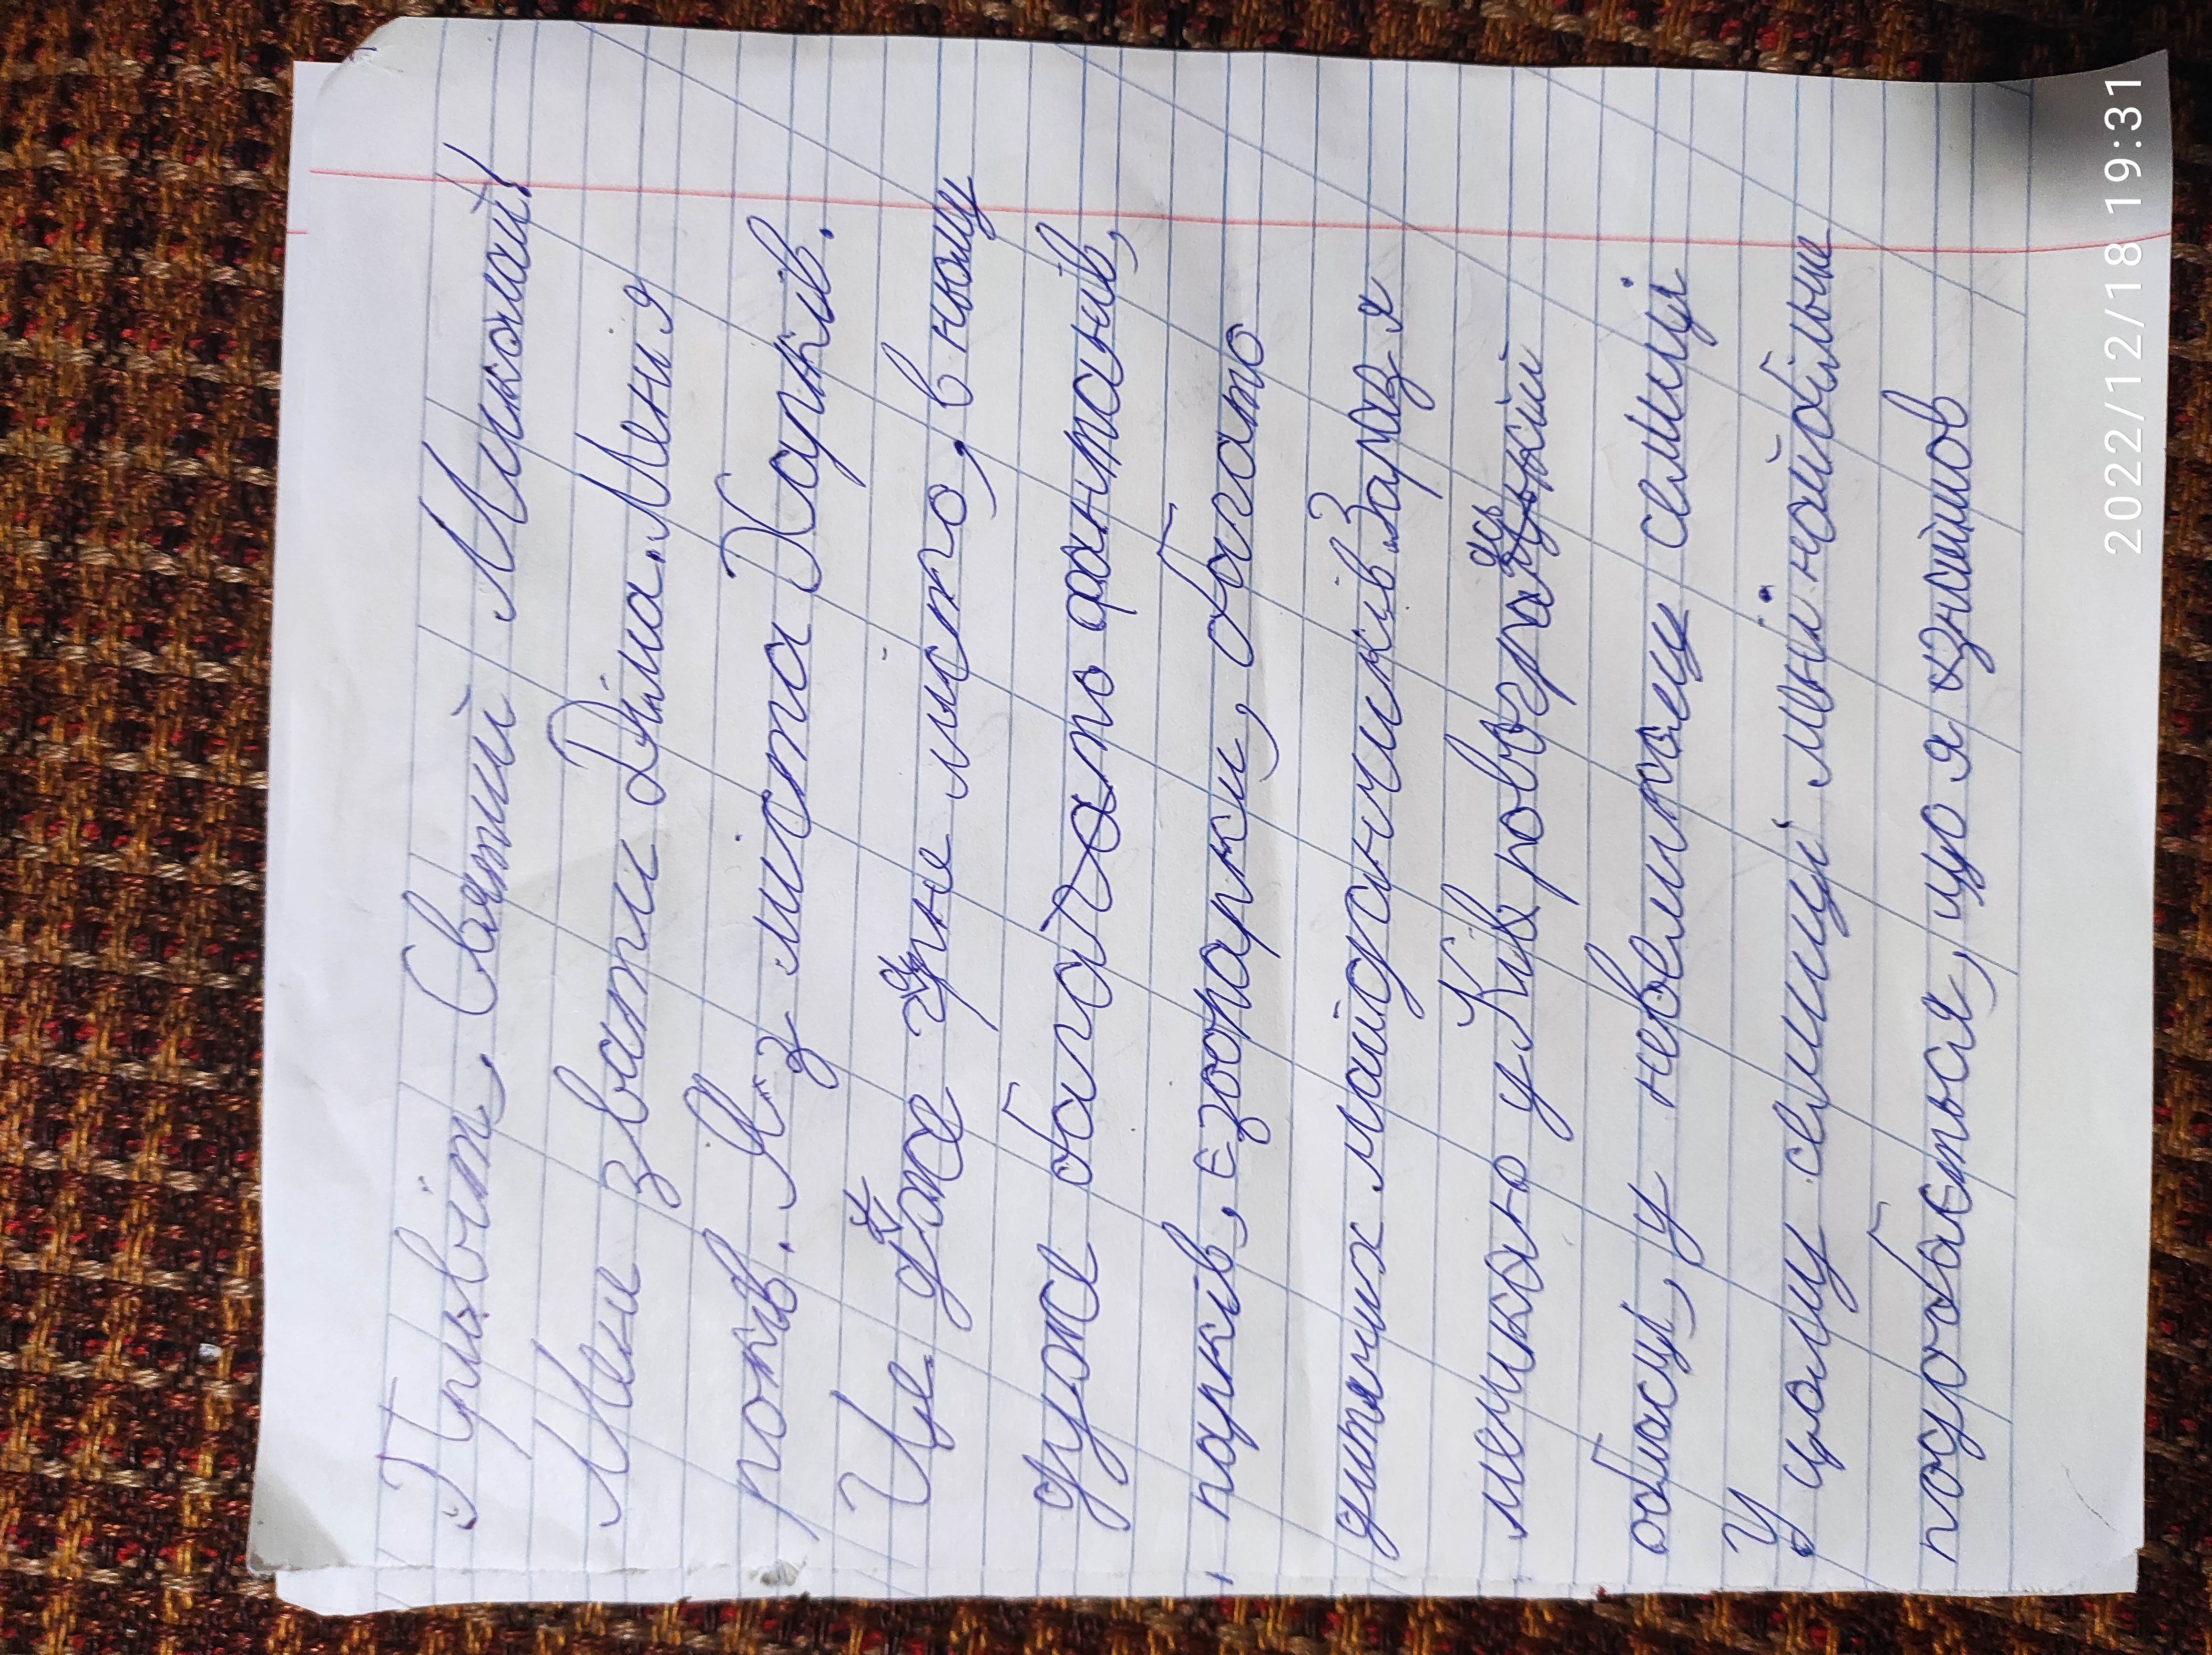 Привіт, Святий Миколай!
Мене звати Діма. Мені 9
років. Я з міста Харків.
Це дуже гарне місто, в ньому
дуже багато фантанів,
парків, є зоопарки, багато
дитячих майданчиків. Зараз я
мешкаю у Кіровоградській
області, у невеликому селищі
У цьому селищі мені найбільше
подобається, що я знайшов
2022/12/18 19:31